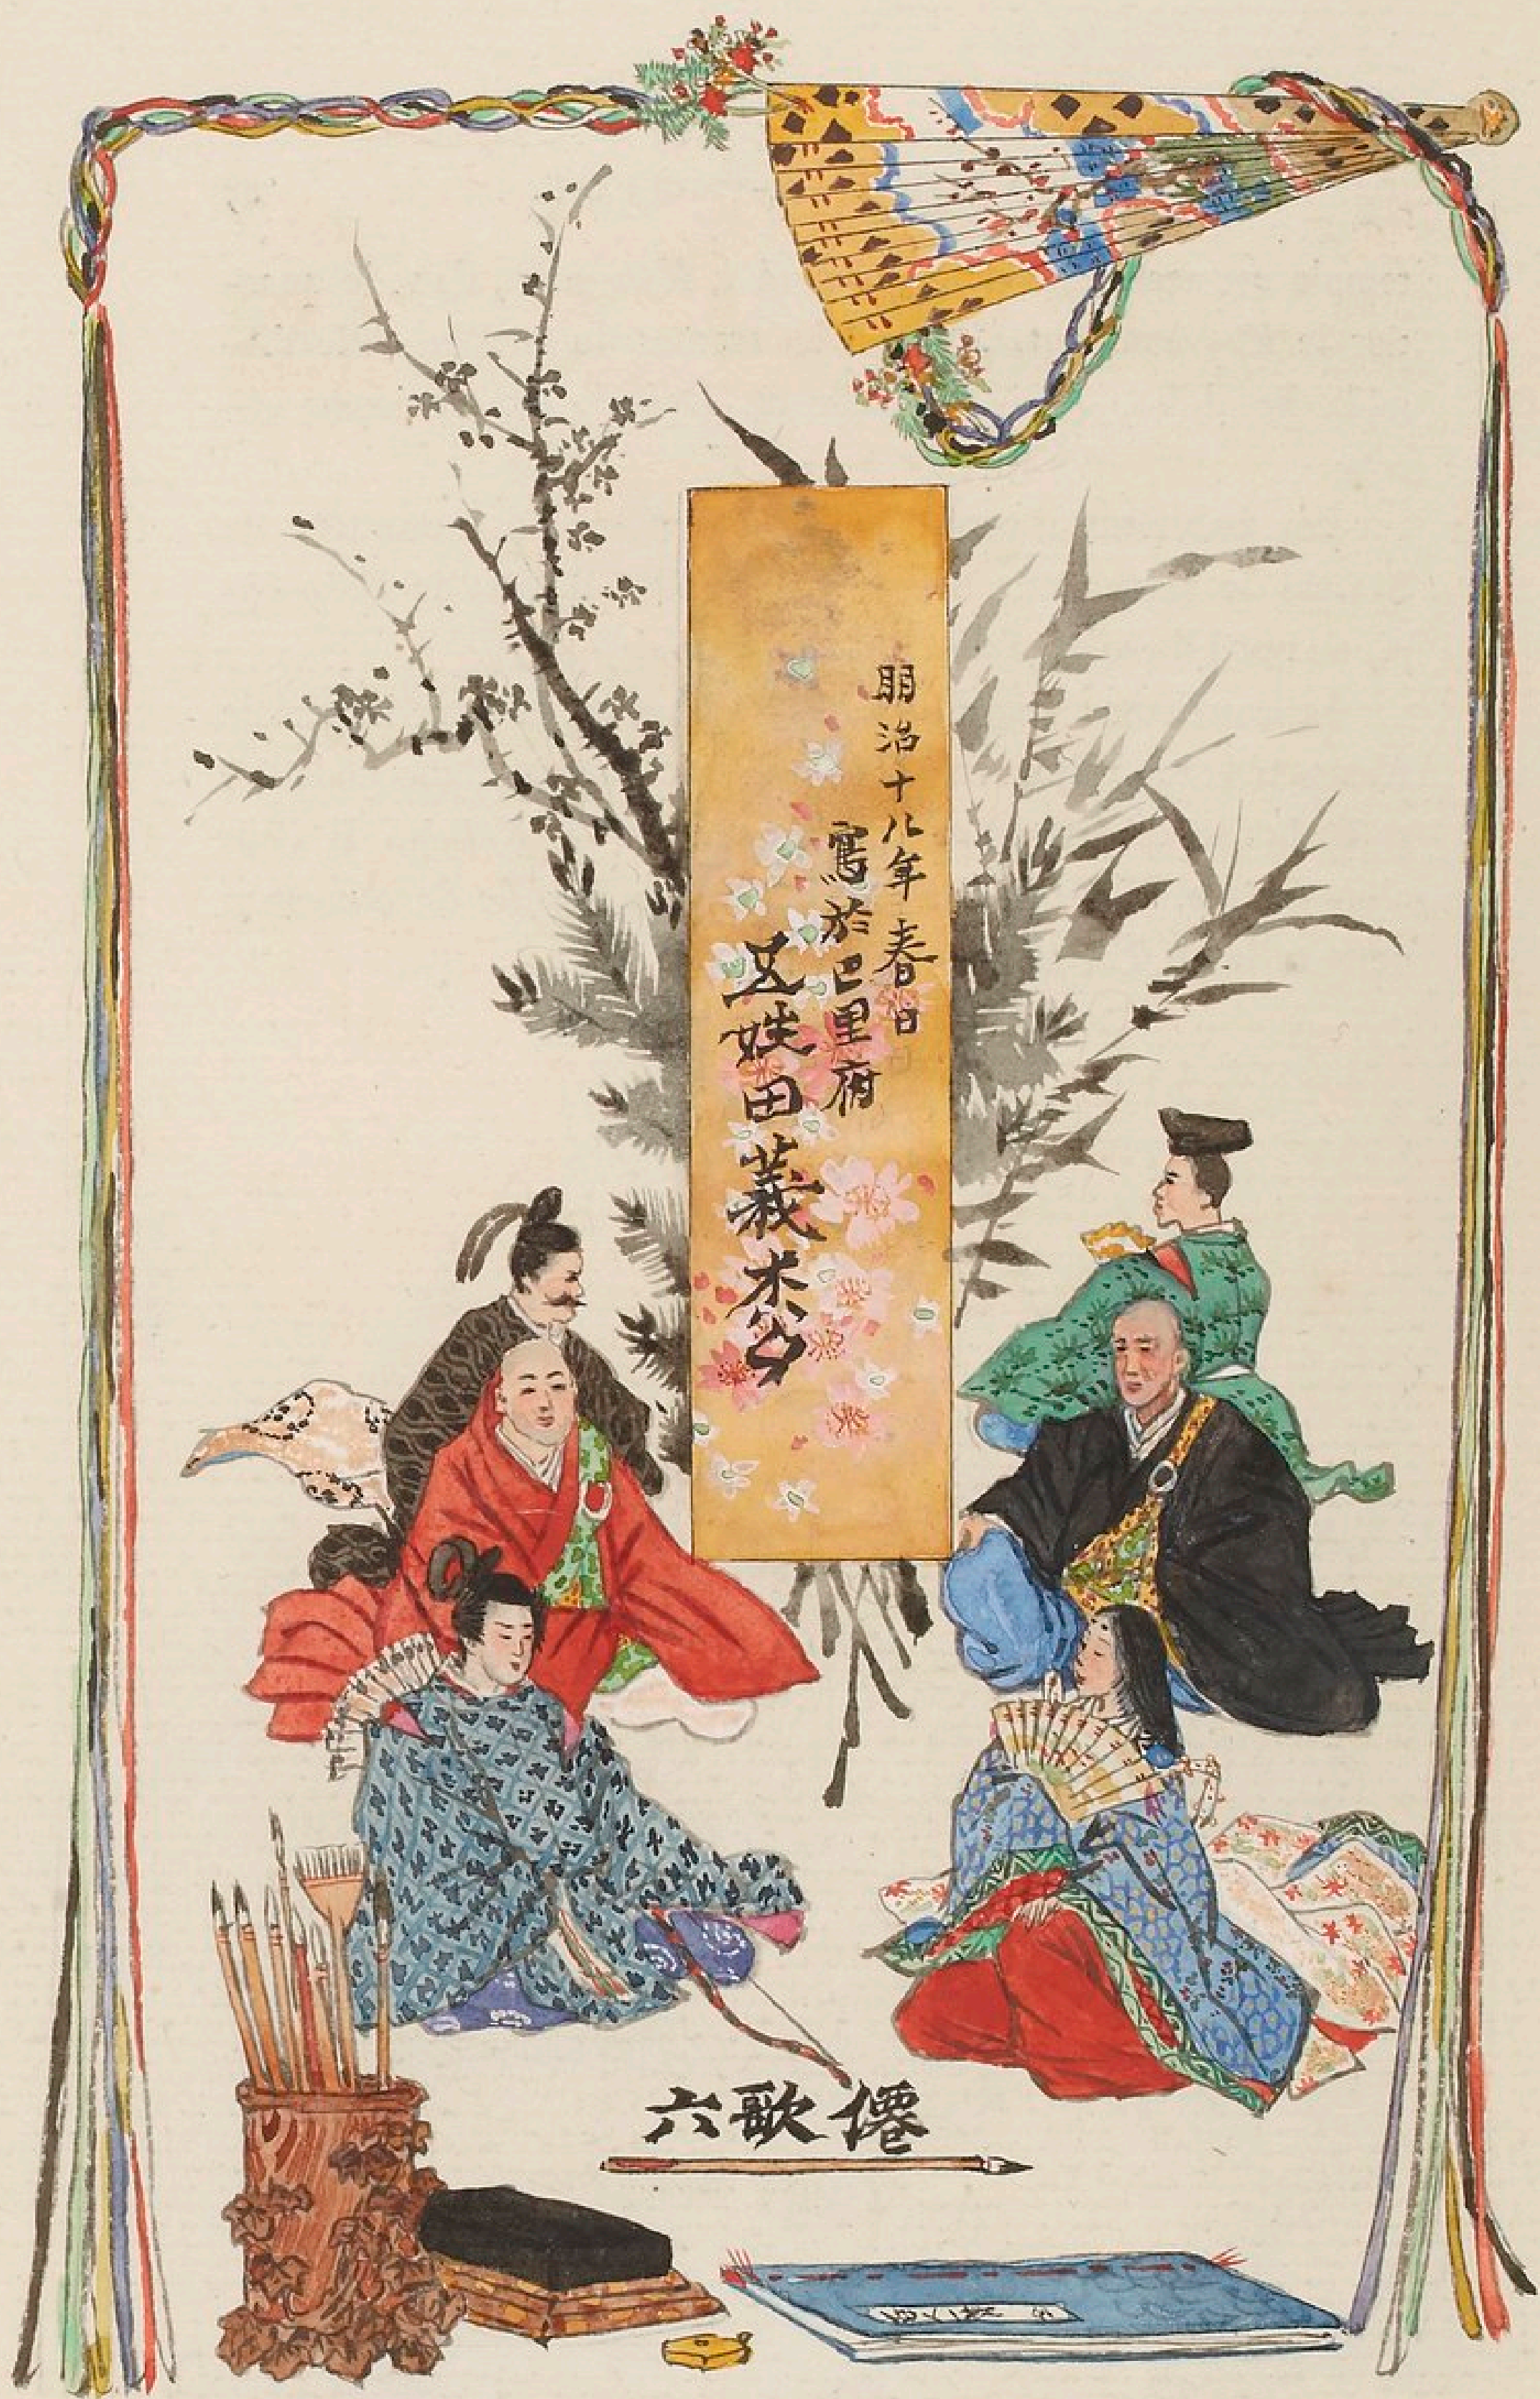 明治十八年春日
寫於巴里府
五姓田義枩
六歌僊